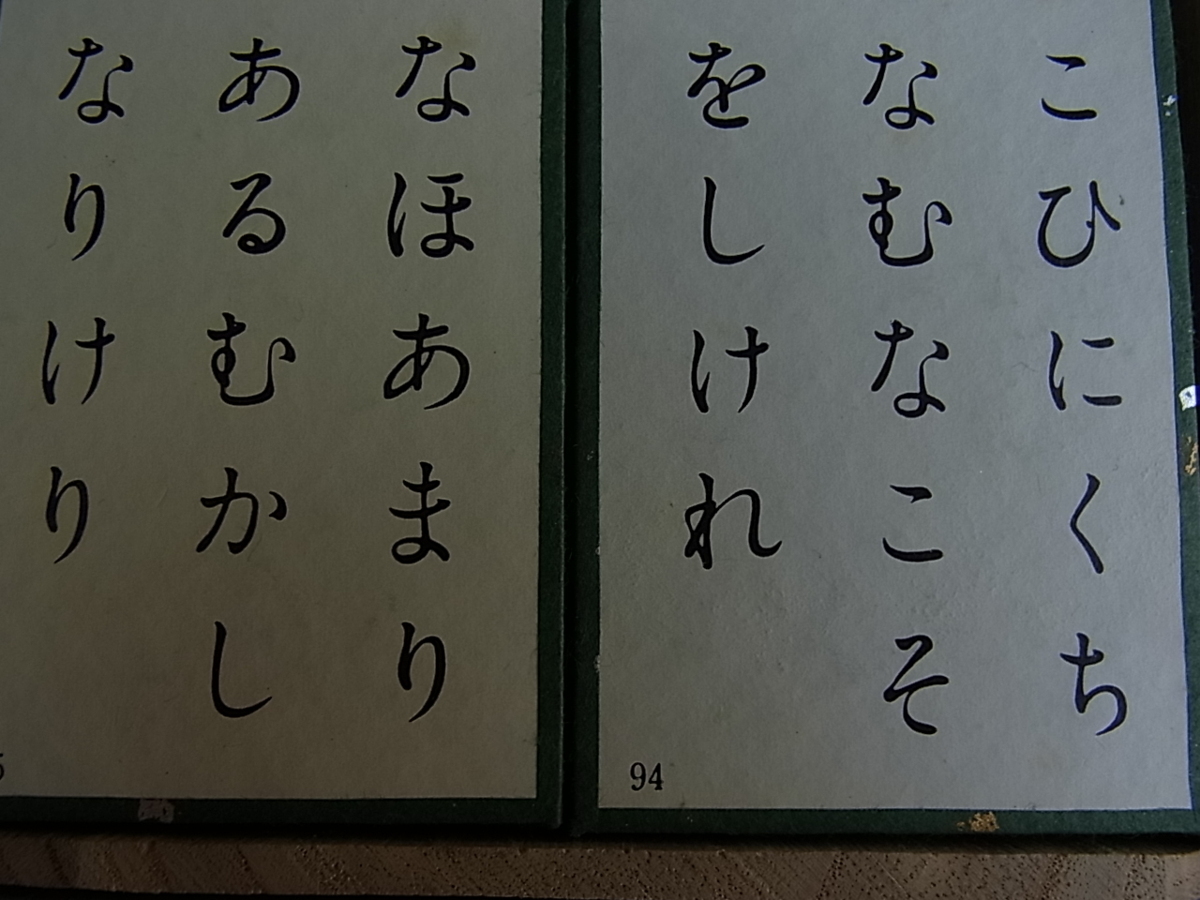 こひにくち
なむなこそ
をしけれ
94
なほあまり
あるむかし
なりけり